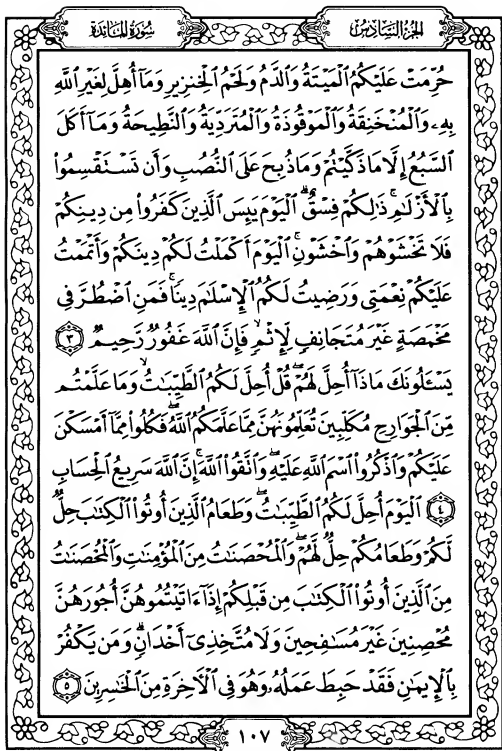 سُورَةُ المَائِدَةِ
الجُزْءُ السَّادِسُ
حُرِّمَتْ عَلَيْكُمُ ٱلْمَيْتَةُ وَٱلدَّمُ وَلَحْمُ ٱلْخِنزِيرِ وَمَآ أُهِلَّ لِغَيْرِ ٱللَّهِ
بِهِۦ وَٱلْمُنْخَنِقَةُ وَٱلْمَوْقُوذَةُ وَٱلْمُتَرَدِّيَةُ وَٱلنَّطِيحَةُ وَمَآ أَكَلَ
ٱلسَّبُعُ إِلَّا مَا ذَكَّيْتُمْ وَمَا ذُبِحَ عَلَى ٱلنُّصُبِ وَأَن تَسْتَقْسِمُوا۟
بِٱلْأَزْلَٰمِ ۚ ذَٰلِكُمْ فِسْقٌ ۗ ٱلْيَوْمَ يَئِسَ ٱلَّذِينَ كَفَرُوا۟ مِن دِينِكُمْ
فَلَا تَخْشَوْهُمْ وَٱخْشَوْنِ ۚ ٱلْيَوْمَ أَكْمَلْتُ لَكُمْ دِينَكُمْ وَأَتْمَمْتُ
عَلَيْكُمْ نِعْمَتِى وَرَضِيتُ لَكُمُ ٱلْإِسْلَٰمَ دِينًا ۚ فَمَنِ ٱضْطُرَّ فِى
مَخْمَصَةٍ غَيْرَ مُتَجَانِفٍ لِّإِثْمٍ ۙ فَإِنَّ ٱللَّهَ غَفُورٌ رَّحِيمٌ ٣
يَسْـَٔلُونَكَ مَاذَآ أُحِلَّ لَهُمْ ۖ قُلْ أُحِلَّ لَكُمُ ٱلطَّيِّبَٰتُ ۙ وَمَا عَلَّمْتُم
مِّنَ ٱلْجَوَارِحِ مُكَلِّبِينَ تُعَلِّمُونَهُنَّ مِمَّا عَلَّمَكُمُ ٱللَّهُ ۖ فَكُلُوا۟ مِمَّآ أَمْسَكْنَ
عَلَيْكُمْ وَٱذْكُرُوا۟ ٱسْمَ ٱللَّهِ عَلَيْهِ ۖ وَٱتَّقُوا۟ ٱللَّهَ ۚ إِنَّ ٱللَّهَ سَرِيعُ ٱلْحِسَابِ
٤ ٱلْيَوْمَ أُحِلَّ لَكُمُ ٱلطَّيِّبَٰتُ ۖ وَطَعَامُ ٱلَّذِينَ أُوتُوا۟ ٱلْكِتَٰبَ حِلٌّ
لَّكُمْ وَطَعَامُكُمْ حِلٌّ لَّهُمْ ۖ وَٱلْمُحْصَنَٰتُ مِنَ ٱلْمُؤْمِنَٰتِ وَٱلْمُحْصَنَٰتُ
مِنَ ٱلَّذِينَ أُوتُوا۟ ٱلْكِتَٰبَ مِن قَبْلِكُمْ إِذَآ ءَاتَيْتُمُوهُنَّ أُجُورَهُنَّ
مُحْصِنِينَ غَيْرَ مُسَٰفِحِينَ وَلَا مُتَّخِذِىٓ أَخْدَانٍ ۗ وَمَن يَكْفُرْ
بِٱلْإِيمَٰنِ فَقَدْ حَبِطَ عَمَلُهُۥ وَهُوَ فِى ٱلْءَاخِرَةِ مِنَ ٱلْخَٰسِرِينَ ٥
١٠٧